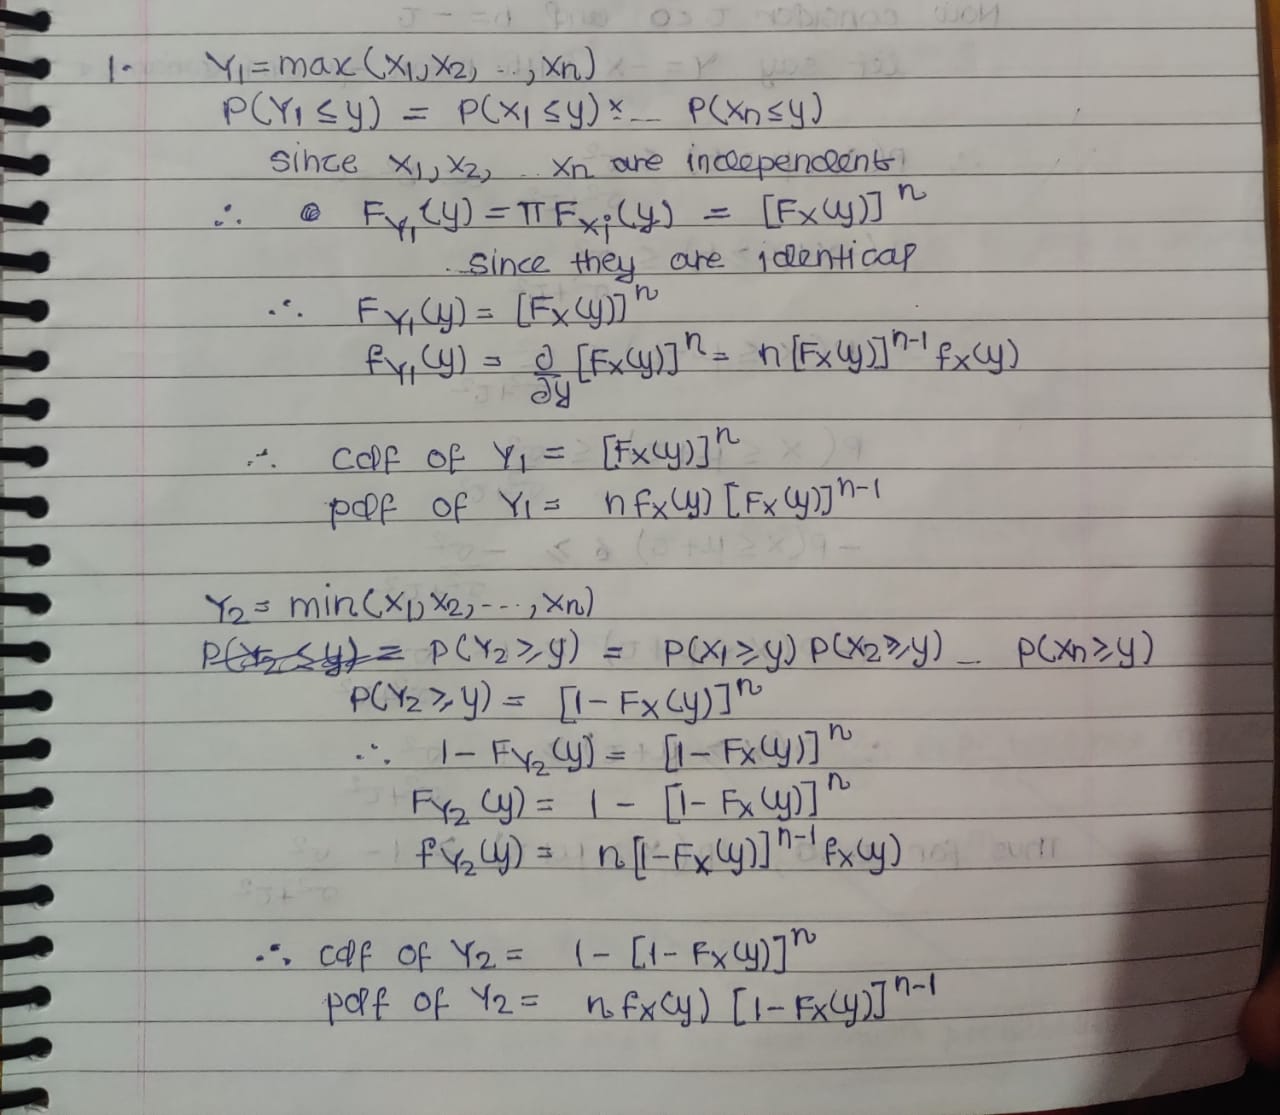 1. Y₁ = max(X₁, X₂, ..., Xn)
P(Y₁ ≤ y) = P(X₁ ≤ y) × _ P(Xn ≤ y)
since X₁, X₂, .. Xn are independent
∴ F_Y₁(y) = π F_Xi(y) = [Fx(y)]ⁿ
since they are identical
∴ F_Y₁(y) = [Fx(y)]ⁿ
f_Y₁(y) = ∂/∂y [Fx(y)]ⁿ = n[Fx(y)]ⁿ⁻¹ fx(y)
∴ cdf of Y₁ = [Fx(y)]ⁿ
pdf of Y₁ = n fx(y) [Fx(y)]ⁿ⁻¹
Y₂ = min(X₁, X₂, ---, Xn)
P(Y₂ ≥ y) = P(X₁ ≥ y) P(X₂ ≥ y) _ P(Xn ≥ y)
P(Y₂ ≥ y) = [1 - Fx(y)]ⁿ
∴ 1 - F_Y₂(y) = [1 - Fx(y)]ⁿ
F_Y₂(y) = 1 - [1 - Fx(y)]ⁿ
f_Y₂(y) = n[1 - Fx(y)]ⁿ⁻¹ fx(y)
∴ cdf of Y₂ = 1 - [1 - Fx(y)]ⁿ
pdf of Y₂ = n fx(y) [1 - Fx(y)]ⁿ⁻¹